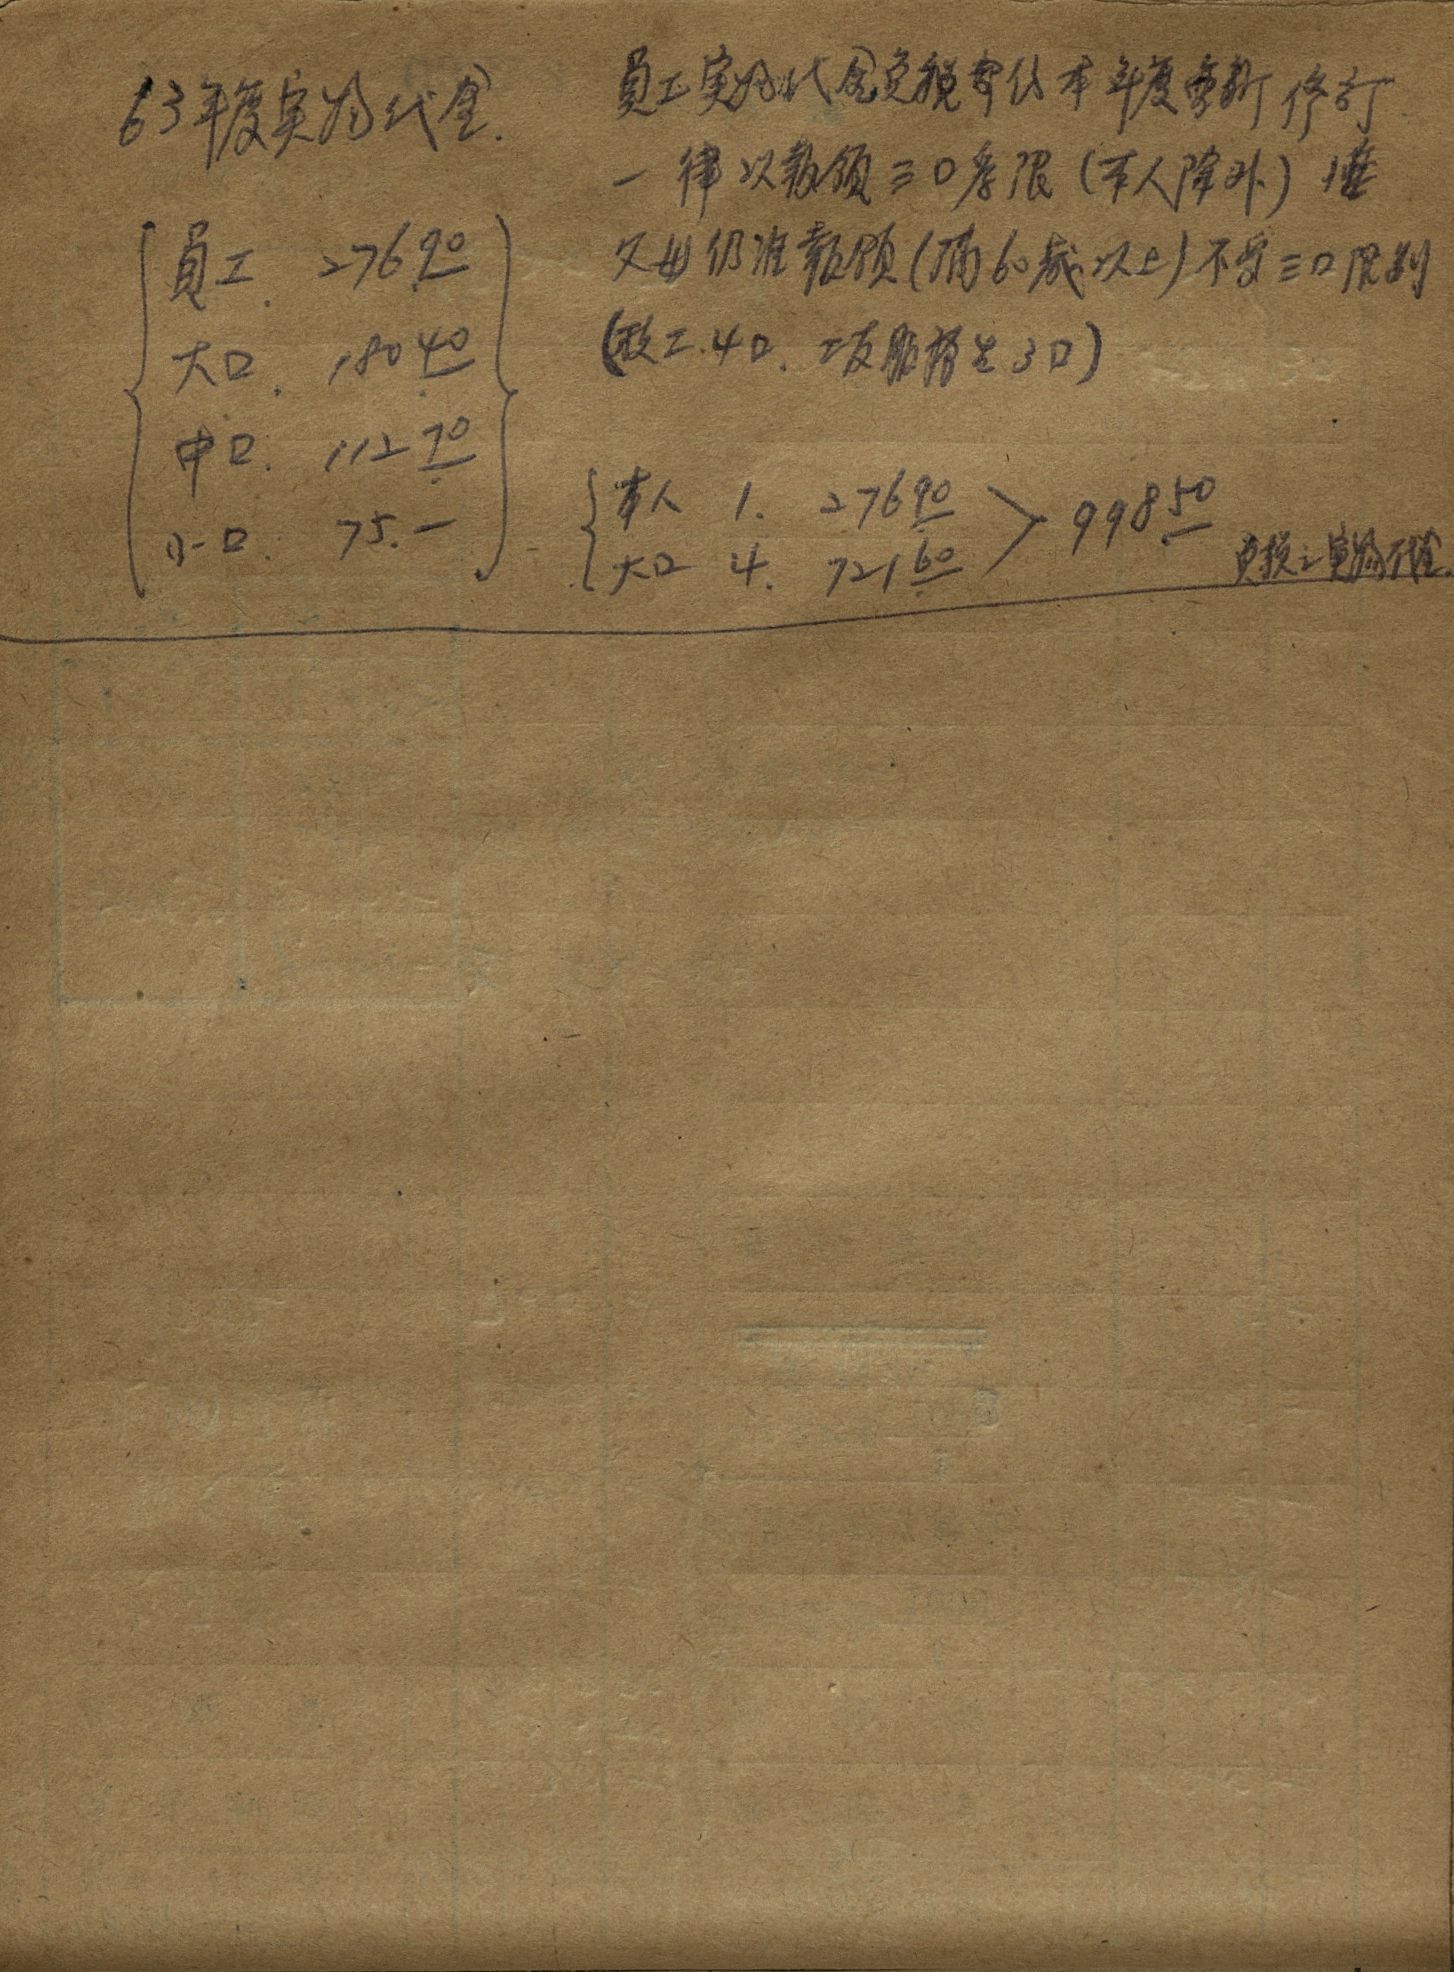 63年度実物代金.
員工 276.90
大口. 180.40
中口. 112.70
小口. 75.一
員工実物代金免稅部份本年度重新修訂
一律以報領三口為限(本人除外) 惟
父母仍准報領(滿60歲以上)不受三口限制
(職工.4口. 工友服務生3口)
本人 1. 276.90
大口 4. 721.60
998.50
免稅之実物代金